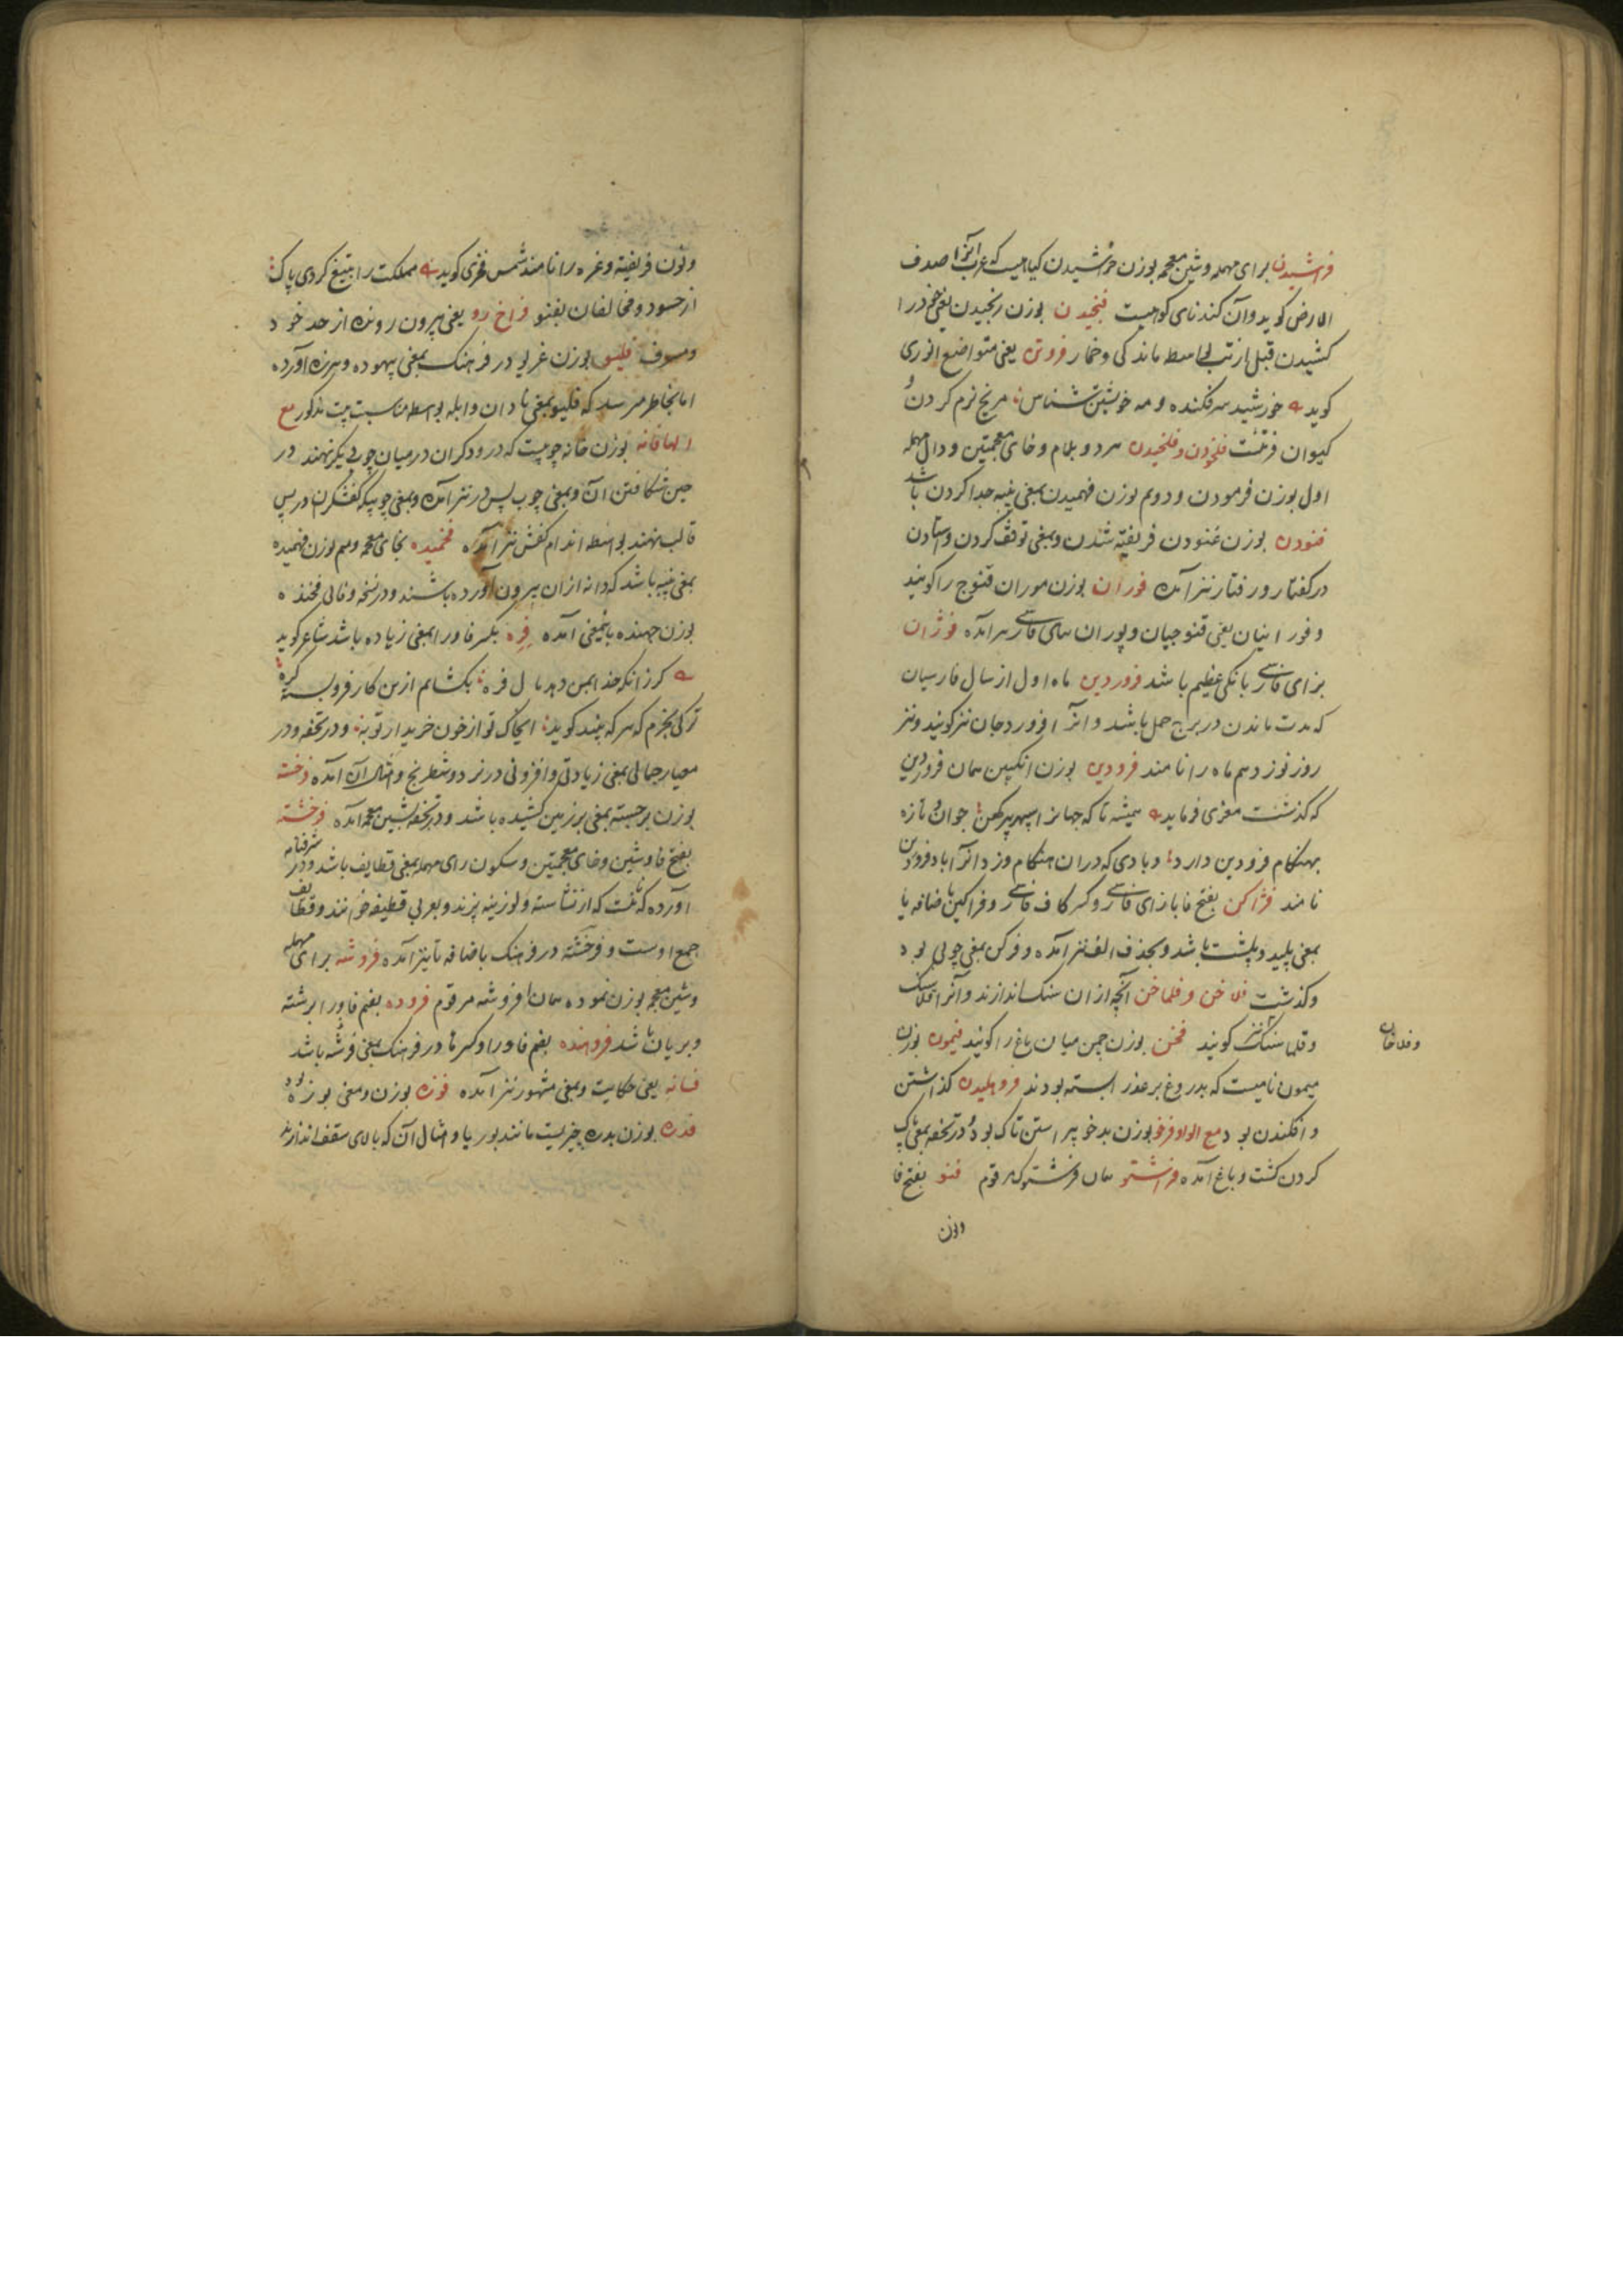 فراشیدن برای مهمله وشین معجمه بوزن خراشیدن کیاهیست که عرب آنرا صدف
الارض کوید وآن کندنای کوهیست فنجیدن بوزن رنجیدن یعنی خود را
کشیدن قبل از تب بواسطه ماندکی وخمار فروتن یعنی متواضع انوری
کوید خورشید سرفکنده ومه خویشتن شناس مریخ نرم کردن
کیوان فروتنست فلخودن وفلخیدن هردو بلام وخای معجمتین ودال مهمله
اول بوزن فرمودن ودوم بوزن فهمیدن بمعنی پنبه جدا کردن باشد
فنودن بوزن غنودن فریفته شدن وبمعنی توقف کردن وستادن
در کفتار ورفتار نیز آمده فوران بوزن موران قنوج را کویند
وفورانیان یعنی قنوجیان وپوران ببای فارسی نیز آمده فوژان
بزای فارسی بانکی عظیم باشد فروردین ماه اول از سال فارسیان
که مدت ماندن در برج حمل باشد وآنرا فروردجان نیز کویند ونیز
روز نوزدهم ماه را نامند فرودین بوزن انکبین همان فروردین
که کذشت معزی فرماید همیشه تا که جهانرا سپهر پیر کهن جوان وتازه
بهنکام فرودین دارد وبادی که دران هنکام وزد آنرا باد فرودین
نامند فژاکن بفتح فا بازای فارسی وکسر کاف فارسی وفژاکین باضافه یا
بمعنی پلید وپلشت باشد وبحذف الف نیز آمده وفرکن بمعنی جویی بود
وکذشت فلاخن وفلماخن آنچه ازان سنک اندازند وآنرا قلاسنک
وقلماسنک نیز کویند فخن بوزن چمن میان باغ را کویند فیمون بوزن
وفلاخان
میمون نامیست که بدروغ بر عذرا بسته بودند فروهلیدن کذاشتن
وافکندن بود مع الواو فرخو بوزن بدخو پیراستن تاک بود ودر تحفه بمعنی پاک
کردن کشت وباغ آمده فراشتو همان فرشتوک مرقوم فنو بفتح فا
ونون
ونون فریفته وغره را نامند شمس فخری کوید مملکت را بتیغ کردی پاک
از حسود ومخالفان بفنو فراخ رو یعنی بیرون رونده از حد خود
ومسرف فلیو بوزن غریو در فرهنک بمعنی بیهوده وهرزه آورده
اما بخاطر میرسد که فلیو بمعنی نادان وابله بواسطه مناسبت بیت مذکور مع
الها فانه بوزن خانه چوبیست که درودکران درمیان چوب دیکر نهند در
حین شکافتن آن وبمعنی چوب پس در نیز آمده وبمعنی چوبیکه کفشکران در پس
قالب نهند بواسطه اندام کفش نیز آمده فخمیده بخای معجمه ومیم بوزن فهمیده
بمعنی پنبه باشد که دانه ازان بیرون آورده باشند ودر نسخه وفائی فخنده
بوزن جهنده باینمعنی آمده فره بکسر فا ورا بمعنی زیاده باشد شاعر کوید
کر زانکه خدا یمین دهد سال فره بکشایم ازین کار فروبسته کره
ترکی بخرم که هر که بیند کوید اینجاک توازخون خریدار تو به ودر تحفه ودر
معیار جمالی بمعنی زیادتی وافزونی در نرد وشطرنج وامثال آن آمده فرخسته
بوزن برجسته بمعنی بر زمین کشیده باشد ودر تحفه بشین معجمه آمده فرخشته
بفتح فا وشین وخای معجمتین وسکون رای مهمله بمعنی قطایف باشد ودر شرفنامه
آورده که نانیست که از نشاسته ولوزینه پزند وبعربی قطیفه خوانند وقطایف
جمع اوست وفرخشته در فرهنک باضافه تا نیز آمده فروشه برای مهمله
وشین معجمه بوزن نموده همان افروشه مرقوم فروده بضم فا ورا برشته
وبریان باشد فروهنده بضم فا ورا وکسر ها در فرهنک بمعنی فرشته باشد
فسانه یعنی حکایت وبمعنی مشهور نیز آمده فوزه بوزن ومعنی بوزه بود
فدره بوزن بدره چیزیست مانند بوریا وامثال آن که بالای سقف اندازند